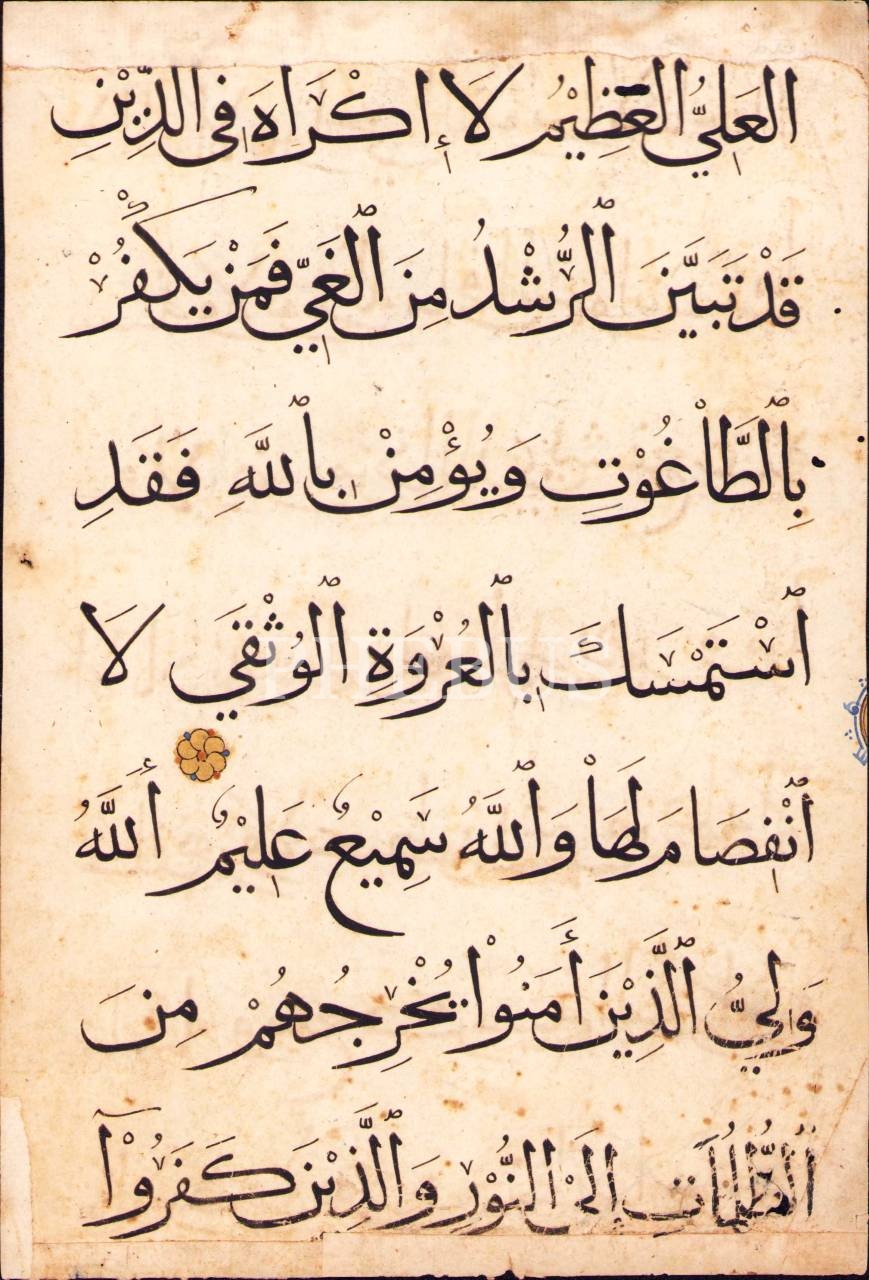 العَلِيُّ العَظِيْمُ لَا إِكْرَاهَ فِى الدِّيْنِ
قَدْ تَبَيَّنَ ٱلرُّشْدُ مِنَ ٱلْغَيِّ فَمَنْ يَكْفُرْ
بِٱلطَّاغُوْتِ وَيُؤْمِنْ بِٱللَّهِ فَقَدِ
ٱسْتَمْسَكَ بِٱلْعُرْوَةِ ٱلْوُثْقَي لَا
ٱنْفِصَامَ لَهَاْ وَٱللَّهُ سَمِيْعٌ عَلِيْمٌ أَللَّهُ
وَلِيُّ ٱلَّذِيْنَ أَمَنُوْا يُخْرِجُهُمْ مِنَ
ٱلظُّلُمَاتِ إِلَىْ ٱلنُّوْرِ وَٱلَّذِيْنَ كَفَرُوْآ